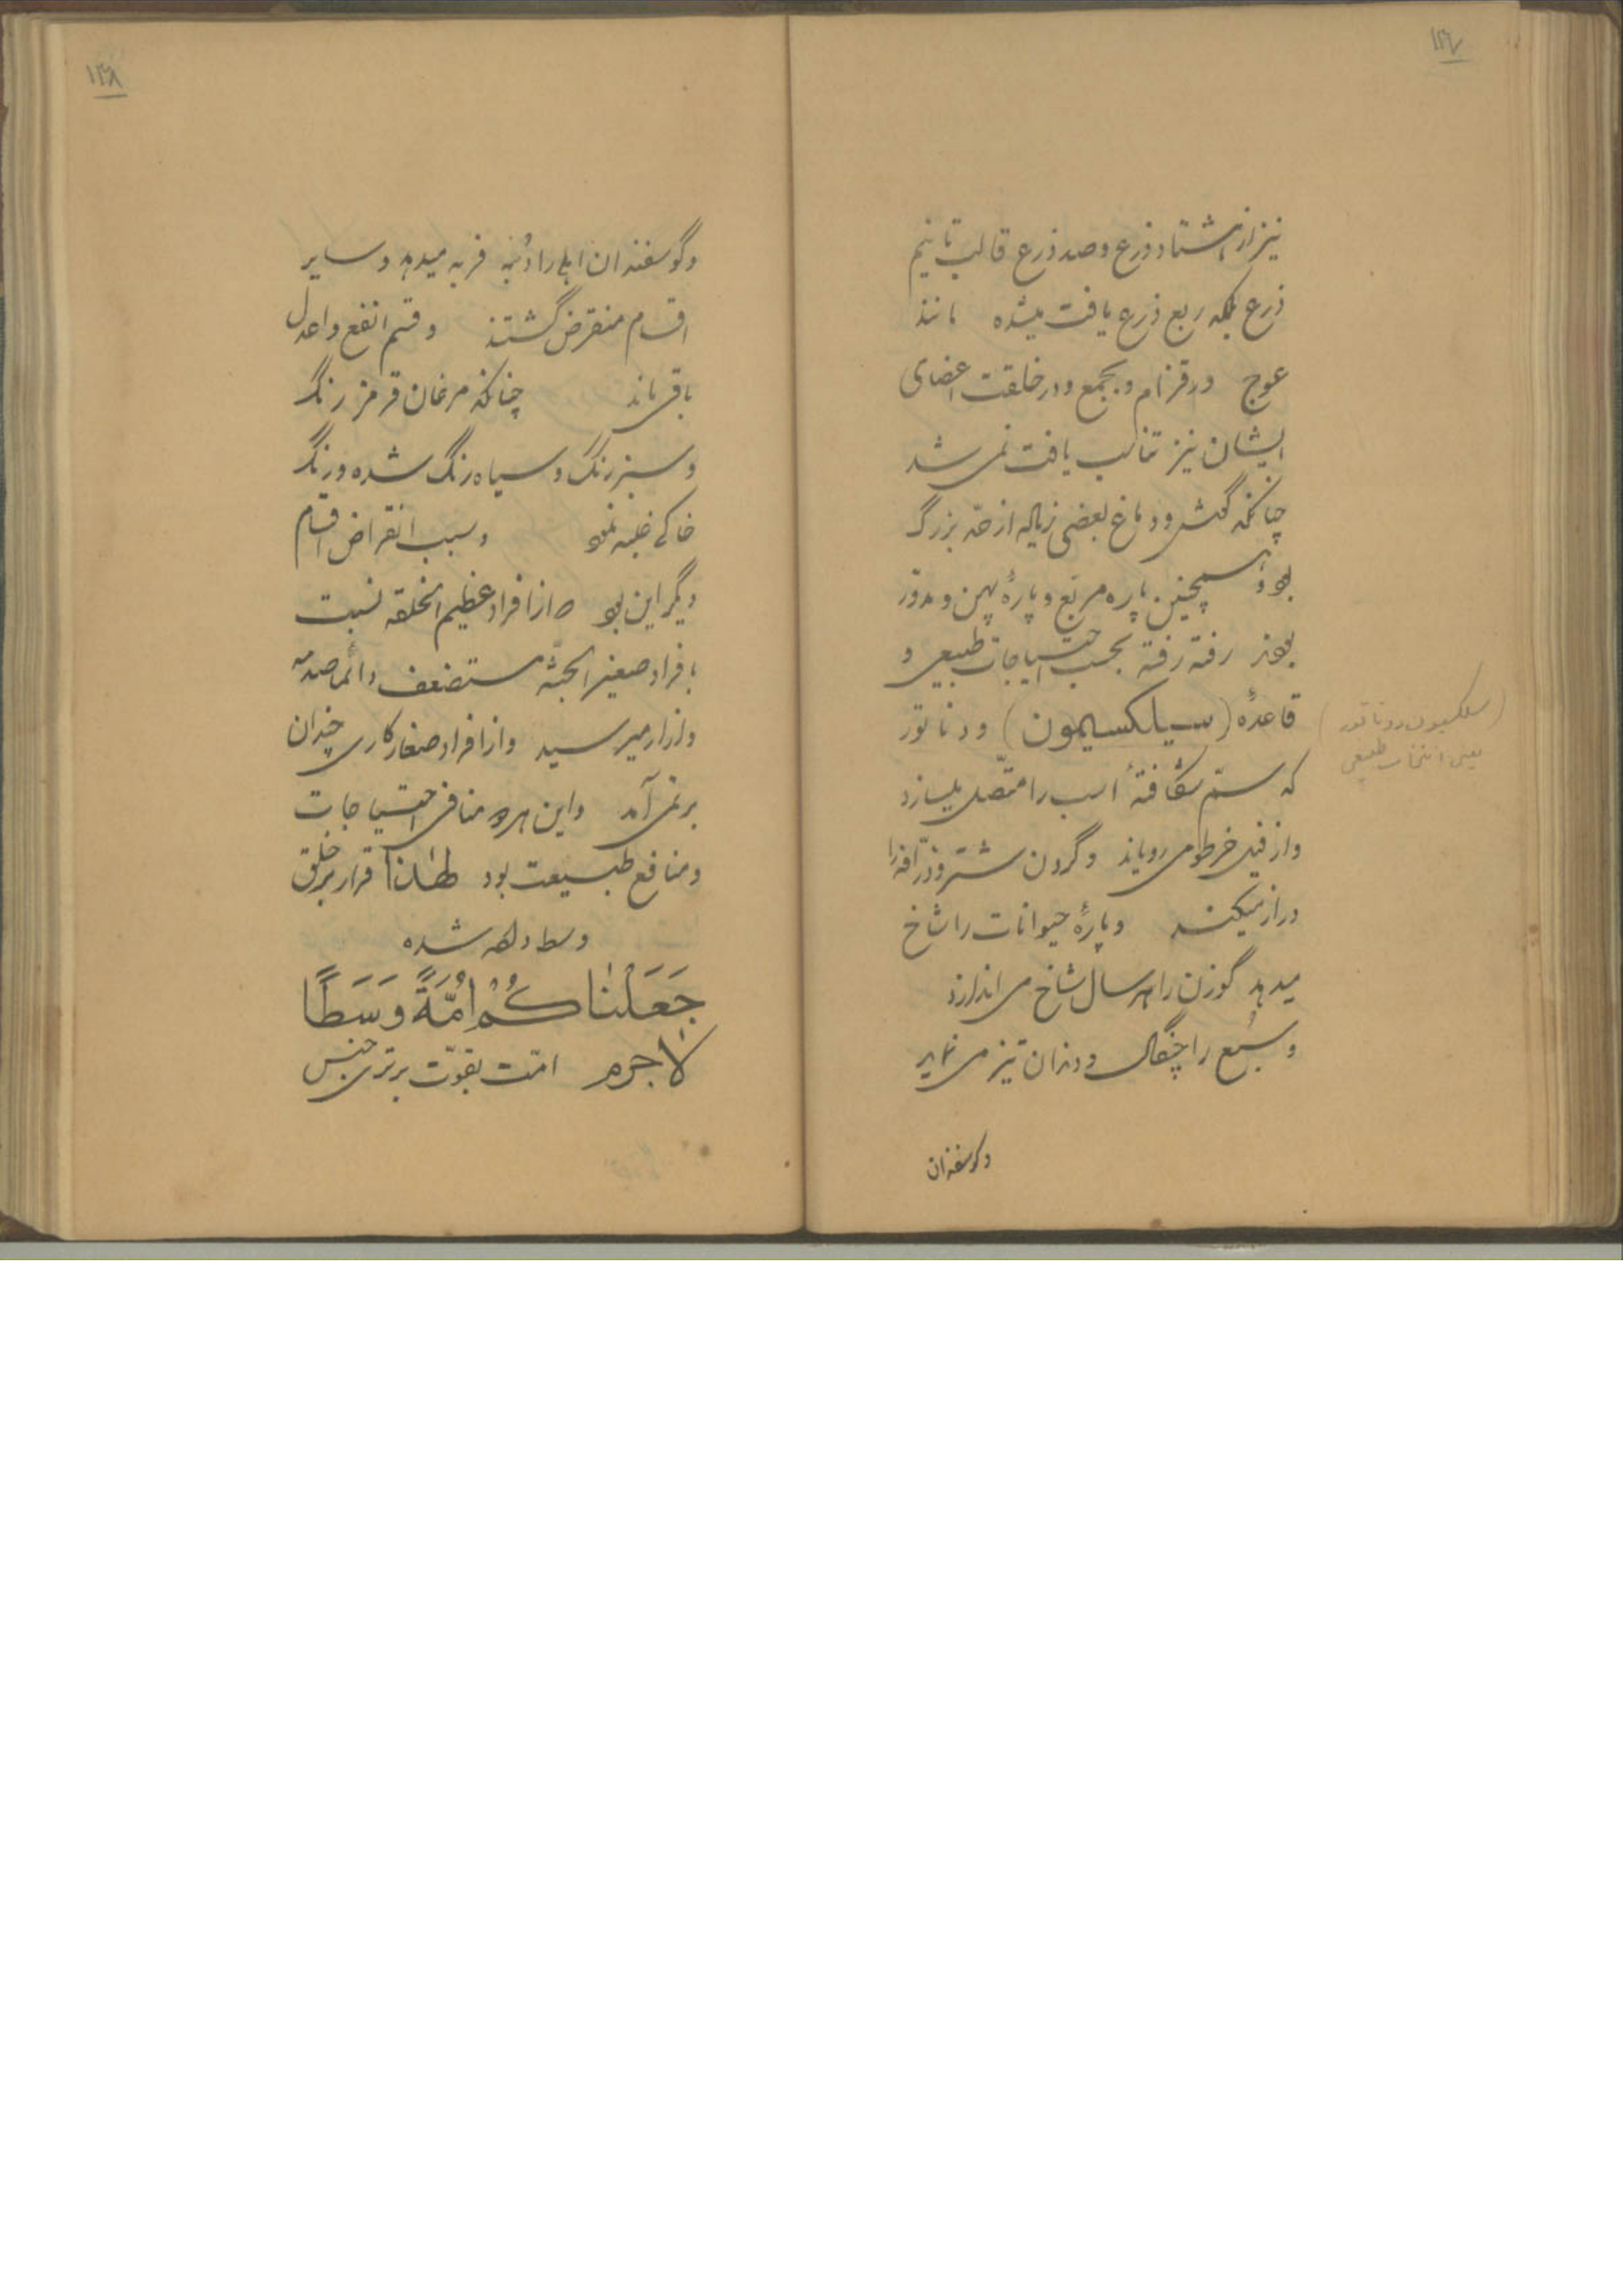 ۱۲۷
نیز از هشتاد ذرع و صد ذرع قالب تا نیم
ذرع بلکه ربع ذرع یافت میشده مانند
عوج و رقزنام و در خلقت اعضای
ایشان نیز تناسب یافت نمی شد
چنانکه گوش و دماغ بعضی زیاده از حد بزرگ
بود و همچنین پاره مربّع و پارهٔ پهن و مدوّر
بودند رفته رفته بحسب احتیاجات طبیعی و
قاعدهٔ (سیلکسیمون) و د ناتور
(سلکسیون دو ناتور
یعنی انتخاب طبیعی)
که سمّ شکافتهٔ اسب را متّصل میسازد
و از فیل خرطوم می رویاند و گردن شتر و زرّافه را
دراز میکند و پارهٔ حیوانات را شاخ
میدهد گوزن را هر سال شاخ می اندازد
و سَبُع را چنگال و دندان تیز می نماید
و گوسفندان
۱۲۸
و گوسفندان اهلی را دُنبه فربه میدهد و سایر
اقسام منقرض گشتند و قسم انفع و اعدل
باقی ماند چنانکه مرغان قرمز رنگ
و سبز رنگ و سیاه رنگ شده و رنگ
خاکی غلبه نمود و سبب انقراض اقسام
دیگر این بود که از افراد عظیم الخلقه نسبت
بافراد صغیر الجثّه مستضعف دائما صدمه
و آزار میرسید و از افراد صغار کاری چندان
بر نمی آمد و این هر دو منافی احتیاجات
و منافع طبیعت بود لهذا قرار بر خلق
وسط داده شده
جَعَلْنٰاكُمْ اُمَّةً وَسَطًا
لاجرم امّت بقوّت برتری جنس